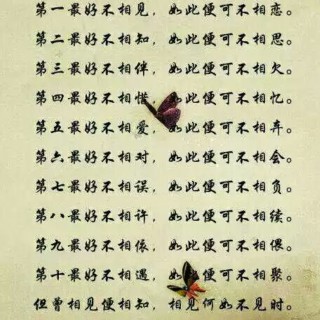 第一最好不相见，如此便可不相恋。
第二最好不相知，如此便可不相思。
第三最好不相伴，如此便可不相欠。
第四最好不相惜 如此便可不相忆。
第五最好不相爱，如此便可不相弃。
第六最好不相对，如此便可不相会。
第七最好不相误，如此便可不相负。
第八最好不相许，如此便可不相续。
第九最好不相依，如此便可不相偎。
第十最好不相遇，如此便可不相聚。
但曾相见便相知，相见何如不见时。